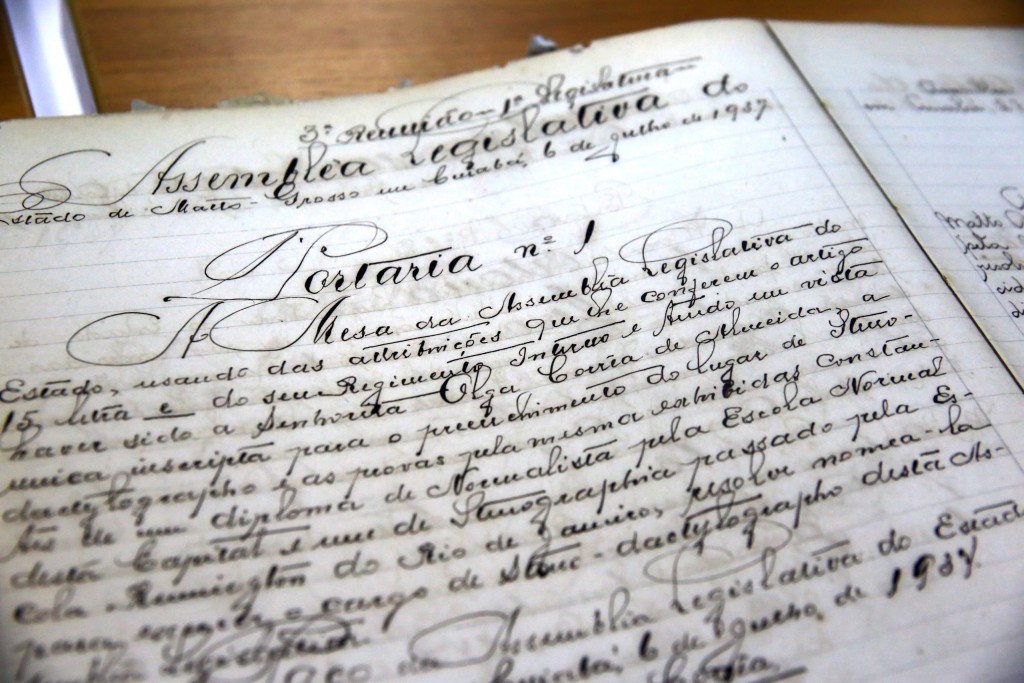 3ª Reunião - 1ª Legislatura
Assembléa Legislativa do
Estado de Matto-Grosso em Cuiabá, 6 de Julho de 1937
Portaria nº 1
A Mesa da Assembléa Legislativa do
Estado, usando das attribuições que lhe conferem o artigo
15, letra e do seu Regimento Interno e tendo em vista
haver sido a Senhorita Olga Corrêa de Almeida, a
unica inscripta para o preenchimento do lugar de Steno-
dactylographo e as provas pela mesma exhibidas constan-
tes de um diploma de Normalista pela Escola Normal
desta Capital e um de Stenographia passado pela Es-
cola Remington do Rio de Janeiro, resolve nomea-la
para exercer o cargo de Steno-dactylographo desta As-
sembléa Legislativa.
Paço da Assembléa Legislativa do Estado
Cuiabá, 6 de Julho, de 1937.